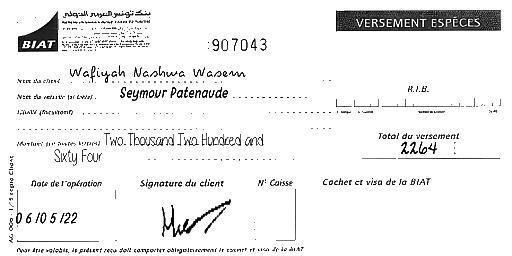 بنك تونس العربي الدولي
BIAT
:907043
VERSEMENT ESPÈCES
Nom du client Wafiyah Nashwa Wasem
R.I.B.
Nom du remettant (si tiers) Seymour Patenaude
Libellé (facultatif)
Montant (en toutes lettres) Two Thousand Two Hundred and
Sixty Four
Total du versement
2264
Date de l'opération
Signature du client
N° Caisse
Cachet et visa de la BIAT
06/05/22
Pour être valable, le présent reçu doit comporter obligatoirement le cachet et visa de la BIAT